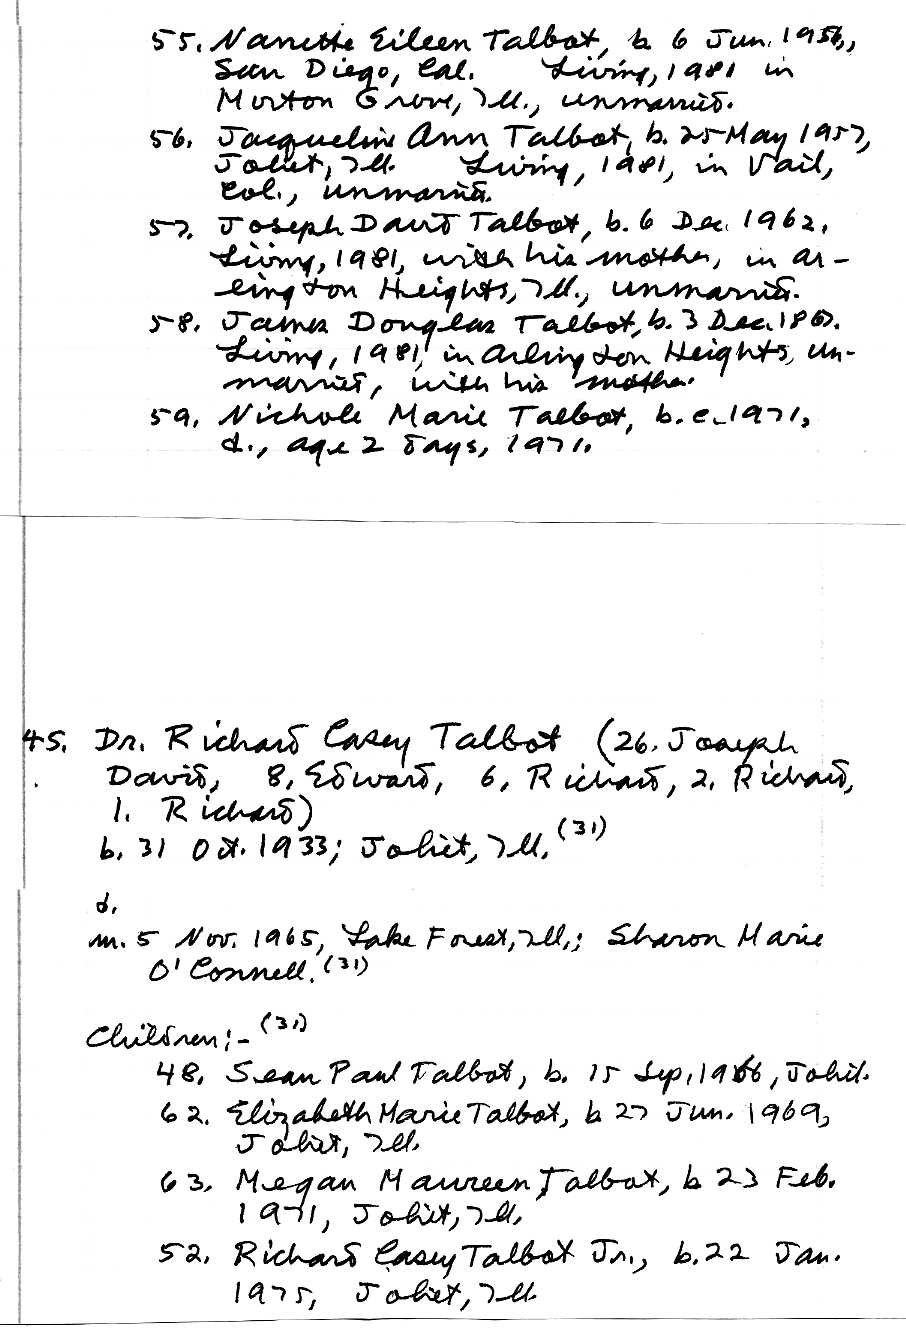 55. Nanette Eileen Talbot, b. 6 Jun. 1956,
San Diego, Cal. Living, 1981 in
Morton Grove, Ill., unmarried.
56. Jacquelin Ann Talbot, b. 25 May 1957,
Joliet, Ill. Living, 1981, in Vail,
Col., unmarried.
57. Joseph David Talbot, b. 6 Dec. 1962.
Living, 1981, with his mother, in Ar-
lington Heights, Ill., unmarried.
58. James Douglas Talbot, b. 3 Dec. 1867.
Living, 1981, in Arlington Heights, un-
married, with his mother.
59. Nichole Marie Talbot, b. c. 1971,
d., age 2 days, 1971.
45. Dr. Richard Casey Talbot (26. Joseph
David, 8, Edward, 6, Richard, 2. Richard,
1. Richard)
b. 31 Oct. 1933; Joliet, Ill. (31)
d.
m. 5 Nov. 1965, Lake Forest, Ill.; Sharon Marie
O'Connell. (31)
Children:- (31)
48. Sean Paul Talbot, b. 15 Sep. 1966, Joliet.
62. Elizabeth Marie Talbot, b 27 Jun. 1969,
Joliet, Ill.
63. Megan Maureen Talbot, b 23 Feb.
1971, Joliet, Ill.
52. Richard Casey Talbot Jr., b. 22 Jan.
1975, Joliet, Ill.